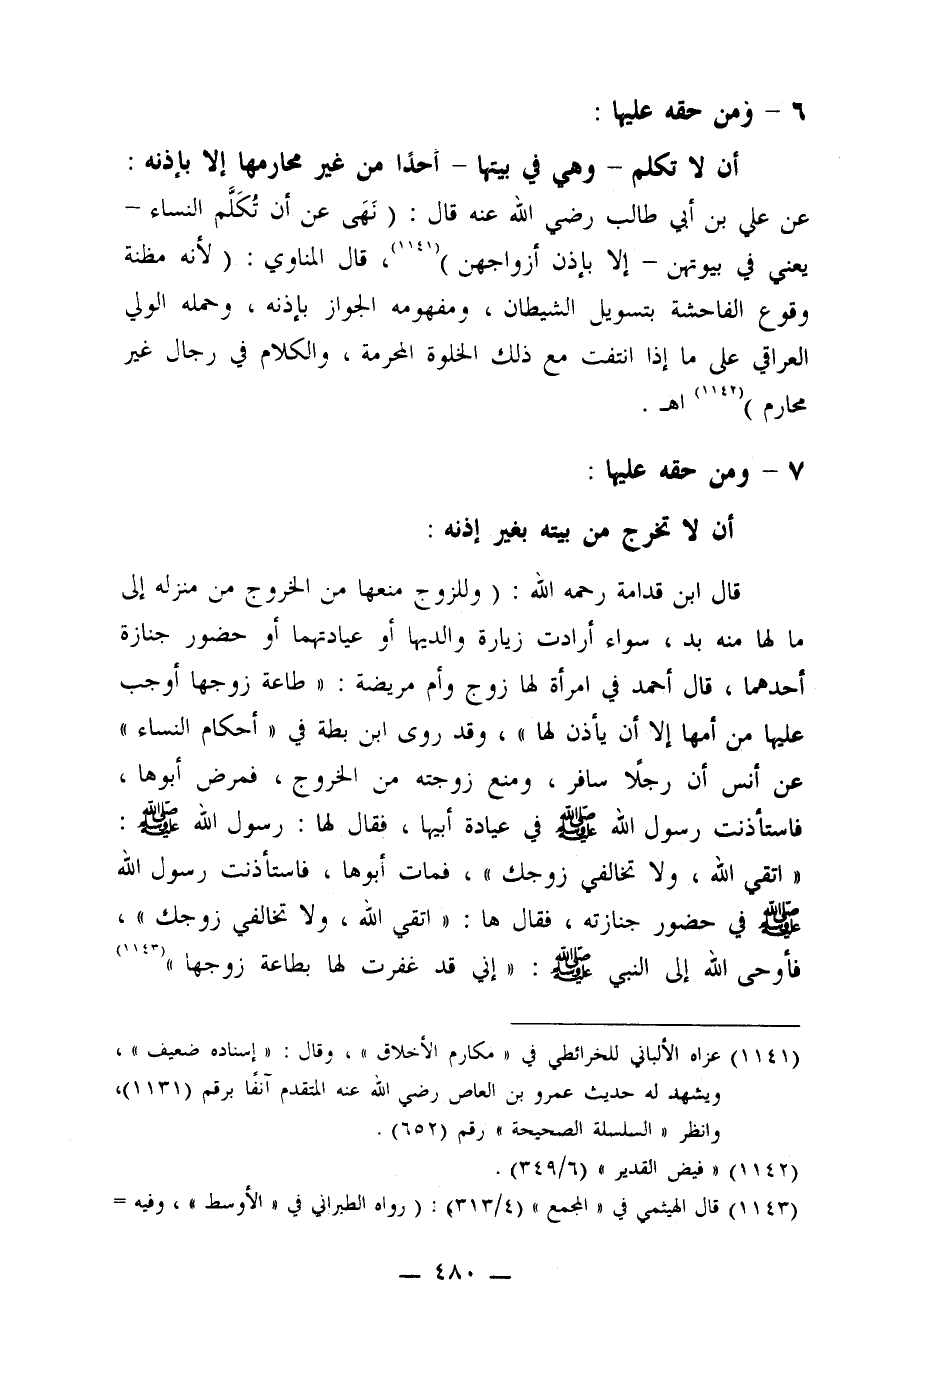 ٦ – ومن حقه عليها :
أن لا تكلم – وهي في بيتها – أحدًا من غير محارمها إلا بإذنه :
عن علي بن أبي طالب رضي الله عنه قال : ( نَهَى عن أن تُكَلَّم النساء –
يعني في بيوتهن – إلا بإذن أزواجهن )(١١٤١)، قال المناوي : ( لأنه مظنة
وقوع الفاحشة بتسويل الشيطان ، ومفهومه الجواز بإذنه ، وحمله الولي
العراقي على ما إذا انتفت مع ذلك الخلوة المحرمة ، والكلام في رجال غير
محارم )(١١٤٢) اهـ .
٧ – ومن حقه عليها :
أن لا تخرج من بيته بغير إذنه :
قال ابن قدامة رحمه الله : ( وللزوج منعها من الخروج من منزله إلى
ما لها منه بد ، سواء أرادت زيارة والديها أو عيادتهما أو حضور جنازة
أحدهما ، قال أحمد في امرأة لها زوج وأم مريضة : « طاعة زوجها أوجب
عليها من أمها إلا أن يأذن لها » ، وقد روى ابن بطة في « أحكام النساء »
عن أنس أن رجلًا سافر ، ومنع زوجته من الخروج ، فمرض أبوها ،
فاستأذنت رسول الله ﷺ في عيادة أبيها ، فقال لها : رسول الله ﷺ :
« اتقي الله ، ولا تخالفي زوجك » ، فمات أبوها ، فاستأذنت رسول الله
ﷺ في حضور جنازته ، فقال ها : « اتقي الله ، ولا تخالفي زوجك » ،
فأوحى الله إلى النبي ﷺ : « إني قد غفرت لها بطاعة زوجها »(١١٤٣)
(١١٤١) عزاه الألباني للخرائطي في « مكارم الأخلاق » ، وقال : « إسناده ضعيف » ،
ويشهد له حديث عمرو بن العاص رضي الله عنه المتقدم آنفًا برقم (١١٣١)،
وانظر « السلسلة الصحيحة » رقم (٦٥٢) .
(١١٤٢) « فيض القدير » (٣٤٩/٦) .
(١١٤٣) قال الهيثمي في « المجمع » (٣١٣/٤) : ( رواه الطبراني في « الأوسط » ، وفيه =
– ٤٨٠ –